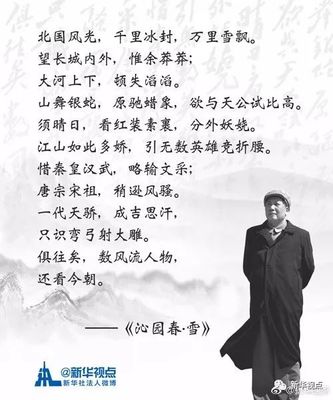 北国风光，千里冰封，万里雪飘。
望长城内外，惟余莽莽；
大河上下，顿失滔滔。
山舞银蛇，原驰蜡象，欲与天公试比高。
须晴日，看红装素裹，分外妖娆。
江山如此多娇，引无数英雄竞折腰。
惜秦皇汉武，略输文采；
唐宗宋祖，稍逊风骚。
一代天骄，成吉思汗，
只识弯弓射大雕。
俱往矣，数风流人物，
还看今朝。
——《沁园春·雪》
@新华视点
新华社法人微博
@新华视点